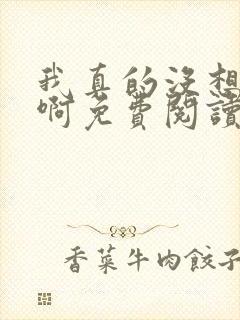 我真的没想
啊免費閱讀
香菜牛肉餃子